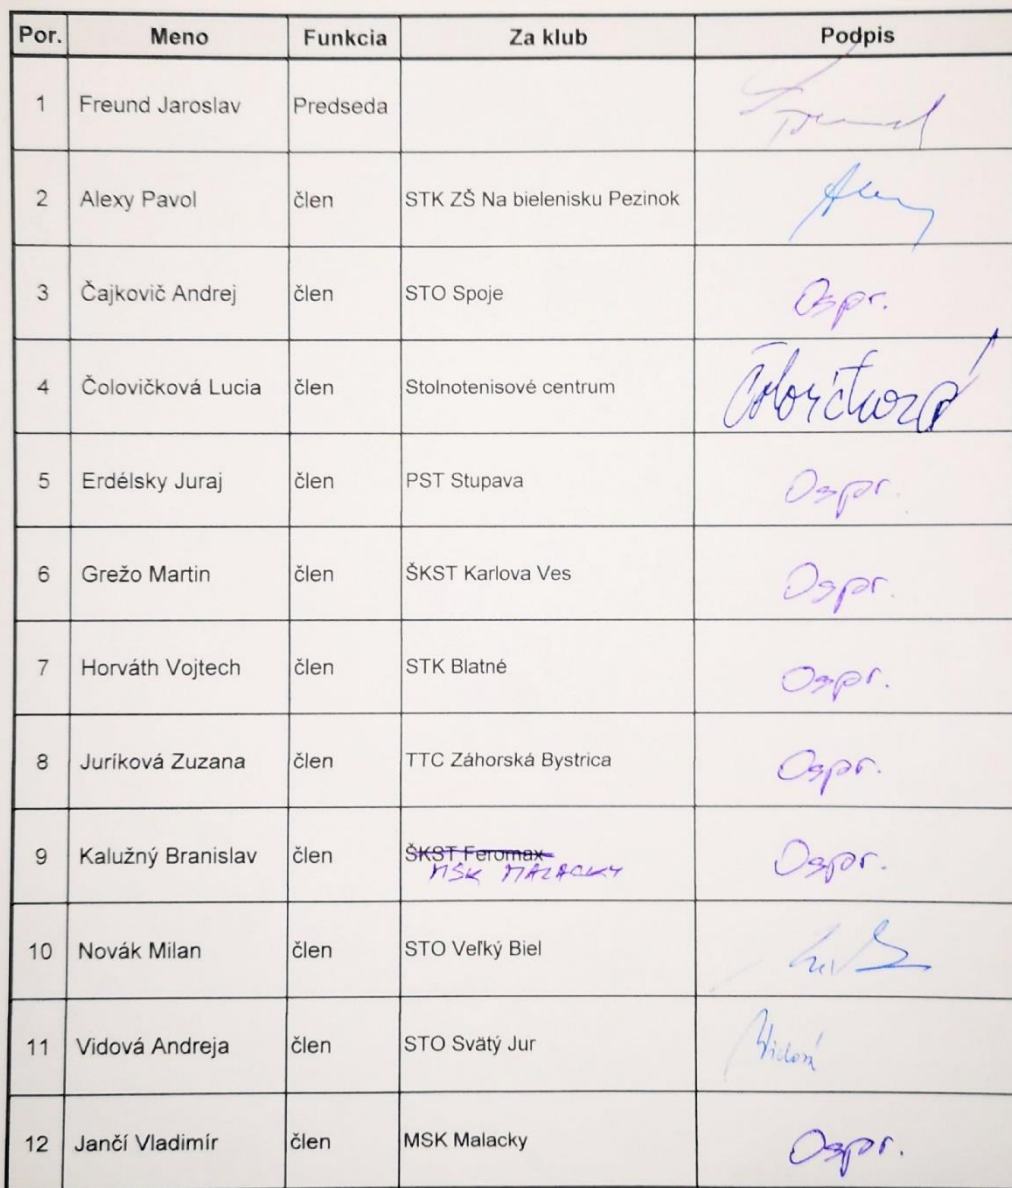 Por. Meno Funkcia Za klub Podpis
1 Freund Jaroslav Predseda
2 Alexy Pavol člen STK ZŠ Na bielenisku Pezinok
3 Čajkovič Andrej člen STO Spoje Ospr.
4 Čolovičková Lucia člen Stolnotenisové centrum
5 Erdélsky Juraj člen PST Stupava Ospr.
6 Grežo Martin člen ŠKST Karlova Ves Ospr.
7 Horváth Vojtech člen STK Blatné Ospr.
8 Juríková Zuzana člen TTC Záhorská Bystrica Ospr.
9 Kalužný Branislav člen ŠKST Feromax Ospr.
MSK MALACKY
10 Novák Milan člen STO Veľký Biel
11 Vidová Andreja člen STO Svätý Jur Vidová
12 Jančí Vladimír člen MSK Malacky Ospr.